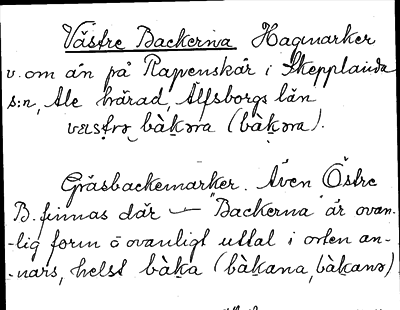 Västre Backerna Hagmarker
v. om ån på Rapenskår i Skepplanda
s:n, Ale härad, Älfsborgs län
væstrə bàḵəra (bàḵəra).
Gräsbackemarker. Även Östre
B. finnas där — "Backerna" är ovan-
-lig form o ovanligt uttal i orten an-
-nars, helst bàḵa (bàḵana, bàḵanə)